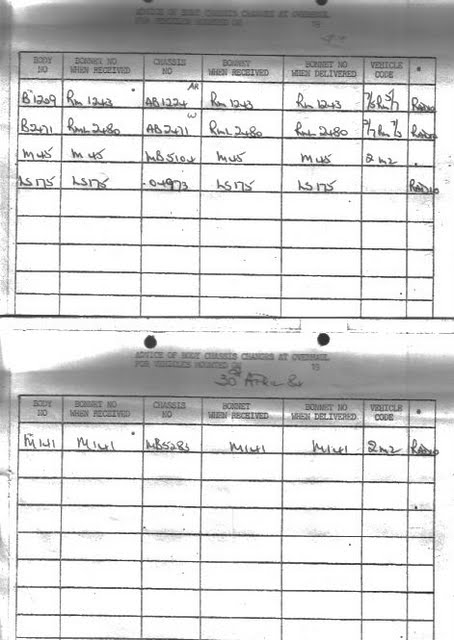 ADVICE OF BODY CHASSIS CHANGES AT OVERHAUL
FOR VEHICLES MOUNTED ON 19
BODY NO BONNET NO WHEN RECEIVED CHASSIS NO BONNET WHEN RECEIVED BONNET NO WHEN DELIVERED VEHICLE CODE *
B1209 Rm 1243 AR AB1224 Rm 1243 Rm 1243 RADIO
B2471 RmL 2480 AB2471 RmL 2480 RmL 2480 RADIO
M45 M45 M45 M45 2m2
LS175 LS175 04973 LS175 LS175 RADIO
ADVICE OF BODY CHASSIS CHANGES AT OVERHAUL
FOR VEHICLES MOUNTED ON 19
30 APRIL 84
BODY NO BONNET NO WHEN RECEIVED CHASSIS NO BONNET WHEN RECEIVED BONNET NO WHEN DELIVERED VEHICLE CODE *
M141 M141 MB5285 M141 M141 2m2 RADIO